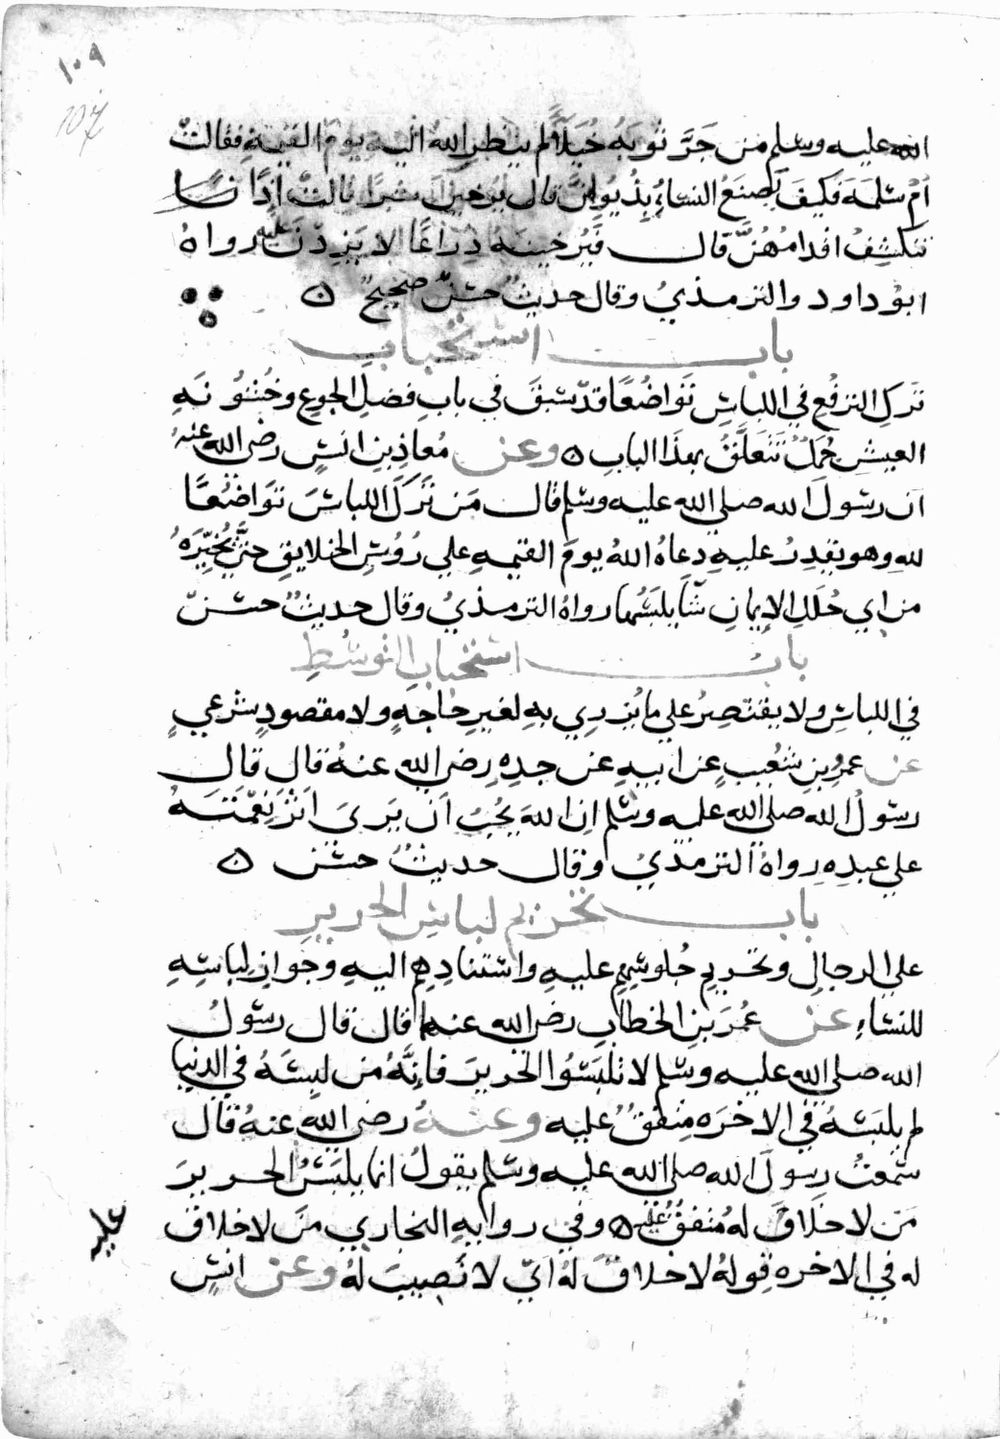 ١٠٩
107
الله عليه وسلم من جَرَّ ثوبَهُ خُيَلَاءَ لم ينظرِ اللهُ اليه يومَ القيمةِ فقالت
اُم سَلمَةَ فكيفَ تصنَعُ النساءُ بِذُيُولهنَّ قال يُرخينَ شبرًا قالت اِذًا
تنكشِفُ اقدامُهُنَّ قال فيُرخينَهُ ذِرَاعًا لا يَزِدْنَ عليه رواهُ
ابوُ داود والترمذيُ وقال حديثٌ حسَنٌ صَحيحٌ ٥
باب استحباب
تركِ الترفعِ في اللباسِ تَوَاضُعًا قدْ سَبقَ في بابِ فضلِ الجوعِ وخُشُونَةِ
العيشِ جُمَلٌ تتَعَلَّقُ بهذا البابِ ٥ وعن مُعاذِ بنِ انَسٍ رضى الله عنهُ
ان رسُولَ الله صلى الله عليه وسَلم قال مَن تَرَكَ اللباسَ توَاضُعًا
للهِ وهو يَقدِرُ عليهِ دعاهُ اللهُ يومَ القيمهِ علي رُؤُسِ الخلايقِ حتَّى يُخيِّرَهُ
من اي حُلَلِ الاِيمانِ شَا يلبَسُها رواهُ الترمذيُ وقال حديثٌ حسَنٌ
باب استحبابِ التوسُطِ
في اللباسِ ولا يقتصِرُ علي ما يُزرِي بهِ لغيرِ حاجهٍ ولا مقصودٍ شرعيٍ
عن عمرِو بنِ شعُيبٍ عن ابيهِ عن جدِهِ رضى الله عنهُ قال قال
رسُولُ الله صلى الله عليه وسَلم ان اللهَ يُحِبُ ان يَرىَ اثرَ نِعْمَتَهُ
علي عبدِهِ رواهُ الترمذيُ وقال حديثٌ حسَن ٥
باب تحريم لباسِ الحرير
علي الرجالِ وتحريمِ جُلوسِهِم عليهِ واستنادِهِم اليهِ وجوازِ لباسِهِ
للنساءِ عن عُمَرَ بنِ الخطابِ رضى الله عنه قال قال رسُولُ
الله صلى الله عليه وسَلم لا تلبَسُوا الحريرَ فانِّهُ من لبِسَهُ في الدنيا
لم يلبَسْهُ في الاخرَه متفقٌ عليه وعنهُ رضى الله عنهُ قال
سَمعتُ رسولَ الله صلى الله عليه وسَلم يقولُ انما يلبَسُ الحريرَ
مَن لا خلاقَ لهُ مُتفقٌ عليه ٥ وفي روايهِ البخاري مَن لا خلاقَ
له في الاخره قولهُ لا خلاقَ لهُ ايْ لا نَصِيبَ لهُ وعن انَسٍ
عليه